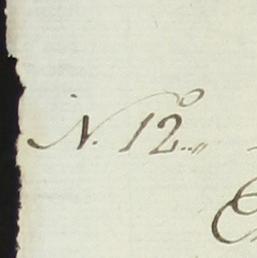 N. 12º